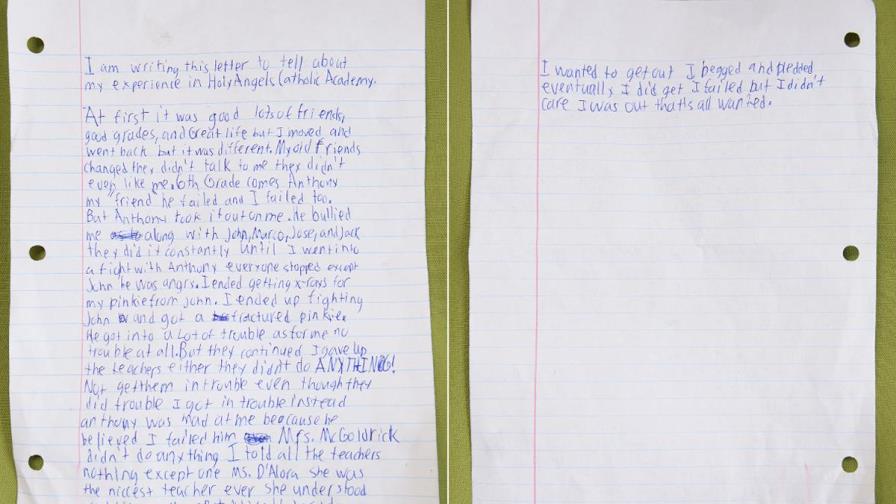 I am writing this letter to tell about
my experience in Holy Angels Catholic Academy.
At first it was good lots of friends,
good grades, and Great life but I moved and
went back but it was different. My old friends
changed they didn't talk to me they didn't
even like me. 6th Grade comes Anthony
my "friend" he failed and I failed too.
But Anthony took it out on me. He bullied
me along with John, Marco, Jose, and Jack
they did it constantly until I went into
a fight with Anthony everyone stopped except
John he was angry. I ended getting x-rays for
my pinkie from john. I ended up fighting
John and got a fractured pinkie.
He got into a Lot of trouble as for me no
trouble at all. But they continued I gave up
the teachers either they didn't do ANYTHING!
Not get them in trouble even though they
did trouble I got in trouble instead
anthony was mad at me beacause he
believed I failed him Mrs. McGoldrick
didn't do anything I told all the teachers
nothing except one Ms. D'Alora she was
the nicest teacher ever she understood
I wanted to get out I begged and pledded
eventually I did get I failed but I didn't
care I was out that's all wanted.